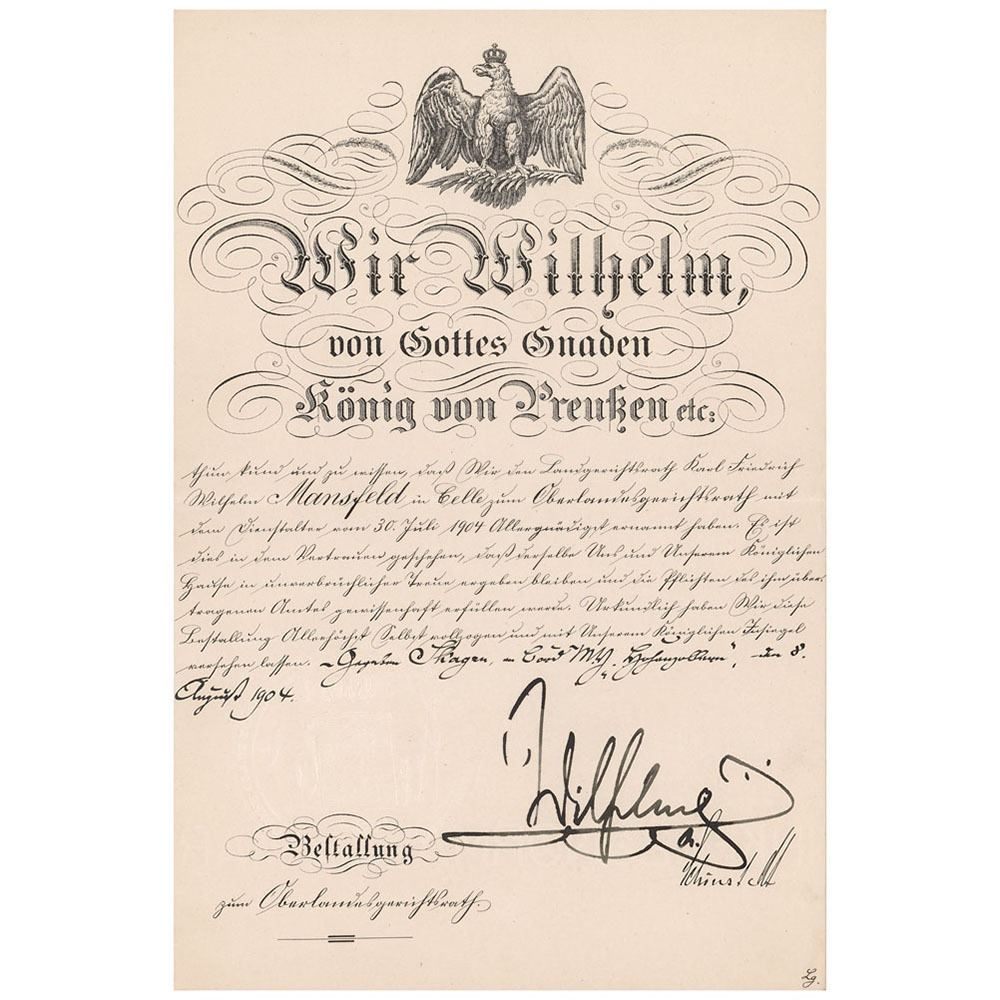 Wir Wilhelm,
von Gottes Gnaden
König von Preußen etc:
thun kund und zu wissen, daß Wir den Landgerichtsrath Karl Friedrich
Wilhelm Mansfeld in Celle zum Oberlandesgerichtsrath mit
dem Dienstalter vom 30. Juli 1904 Allergnädigst ernannt haben. Es ist
dies in dem Vertrauen geschehen, daß derselbe Uns und Unserem Königlichen
Hause in unverbrüchlicher Treue ergeben bleiben und die Pflichten des ihm über-
tragenen Amtes gewissenhaft erfüllen werde. Urkundlich haben Wir diese
Bestallung Allerhöchst Selbst vollzogen und mit Unserem Königlichen Insiegel
versehen lassen. – Gegeben Skagen, an Bord M.Y. „Hohenzollern", den 8.
August 1904.
Wilhelm
Bestallung
zum Oberlandesgerichtsrath.
Lg.